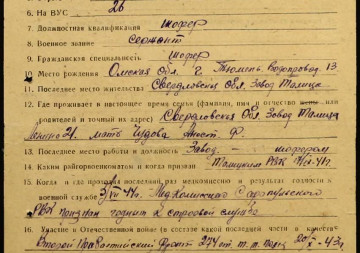 6. На ВУС 26
7. Должностная квалификация шофер
8. Военное звание сержант
9. Гражданская специальность шофер
10. Место рождения Омская обл. г. Тюмень Водопровод 13
11. Последнее место жительства Свердловская обл. Завод Талица
12. Где проживает в настоящее время семья (фамилия, имя и отчество жены или
родителей и точный их адрес) Свердловская обл. Завод Талица
21. мать Чудова Ф.
13. Последнее место работы и должность Завод. — шофером
14. Каким райгорвоенкоматом и когда призван Талицким РВК
15. Когда и где проходил последний раз медкомиссию и результат годности к
военной службе Сарапульского
РВК признан годным к строевой службе
16. Участие в Отечественной войне (в составе какой последней части в качестве
Второй Прибалтийский фронт 274